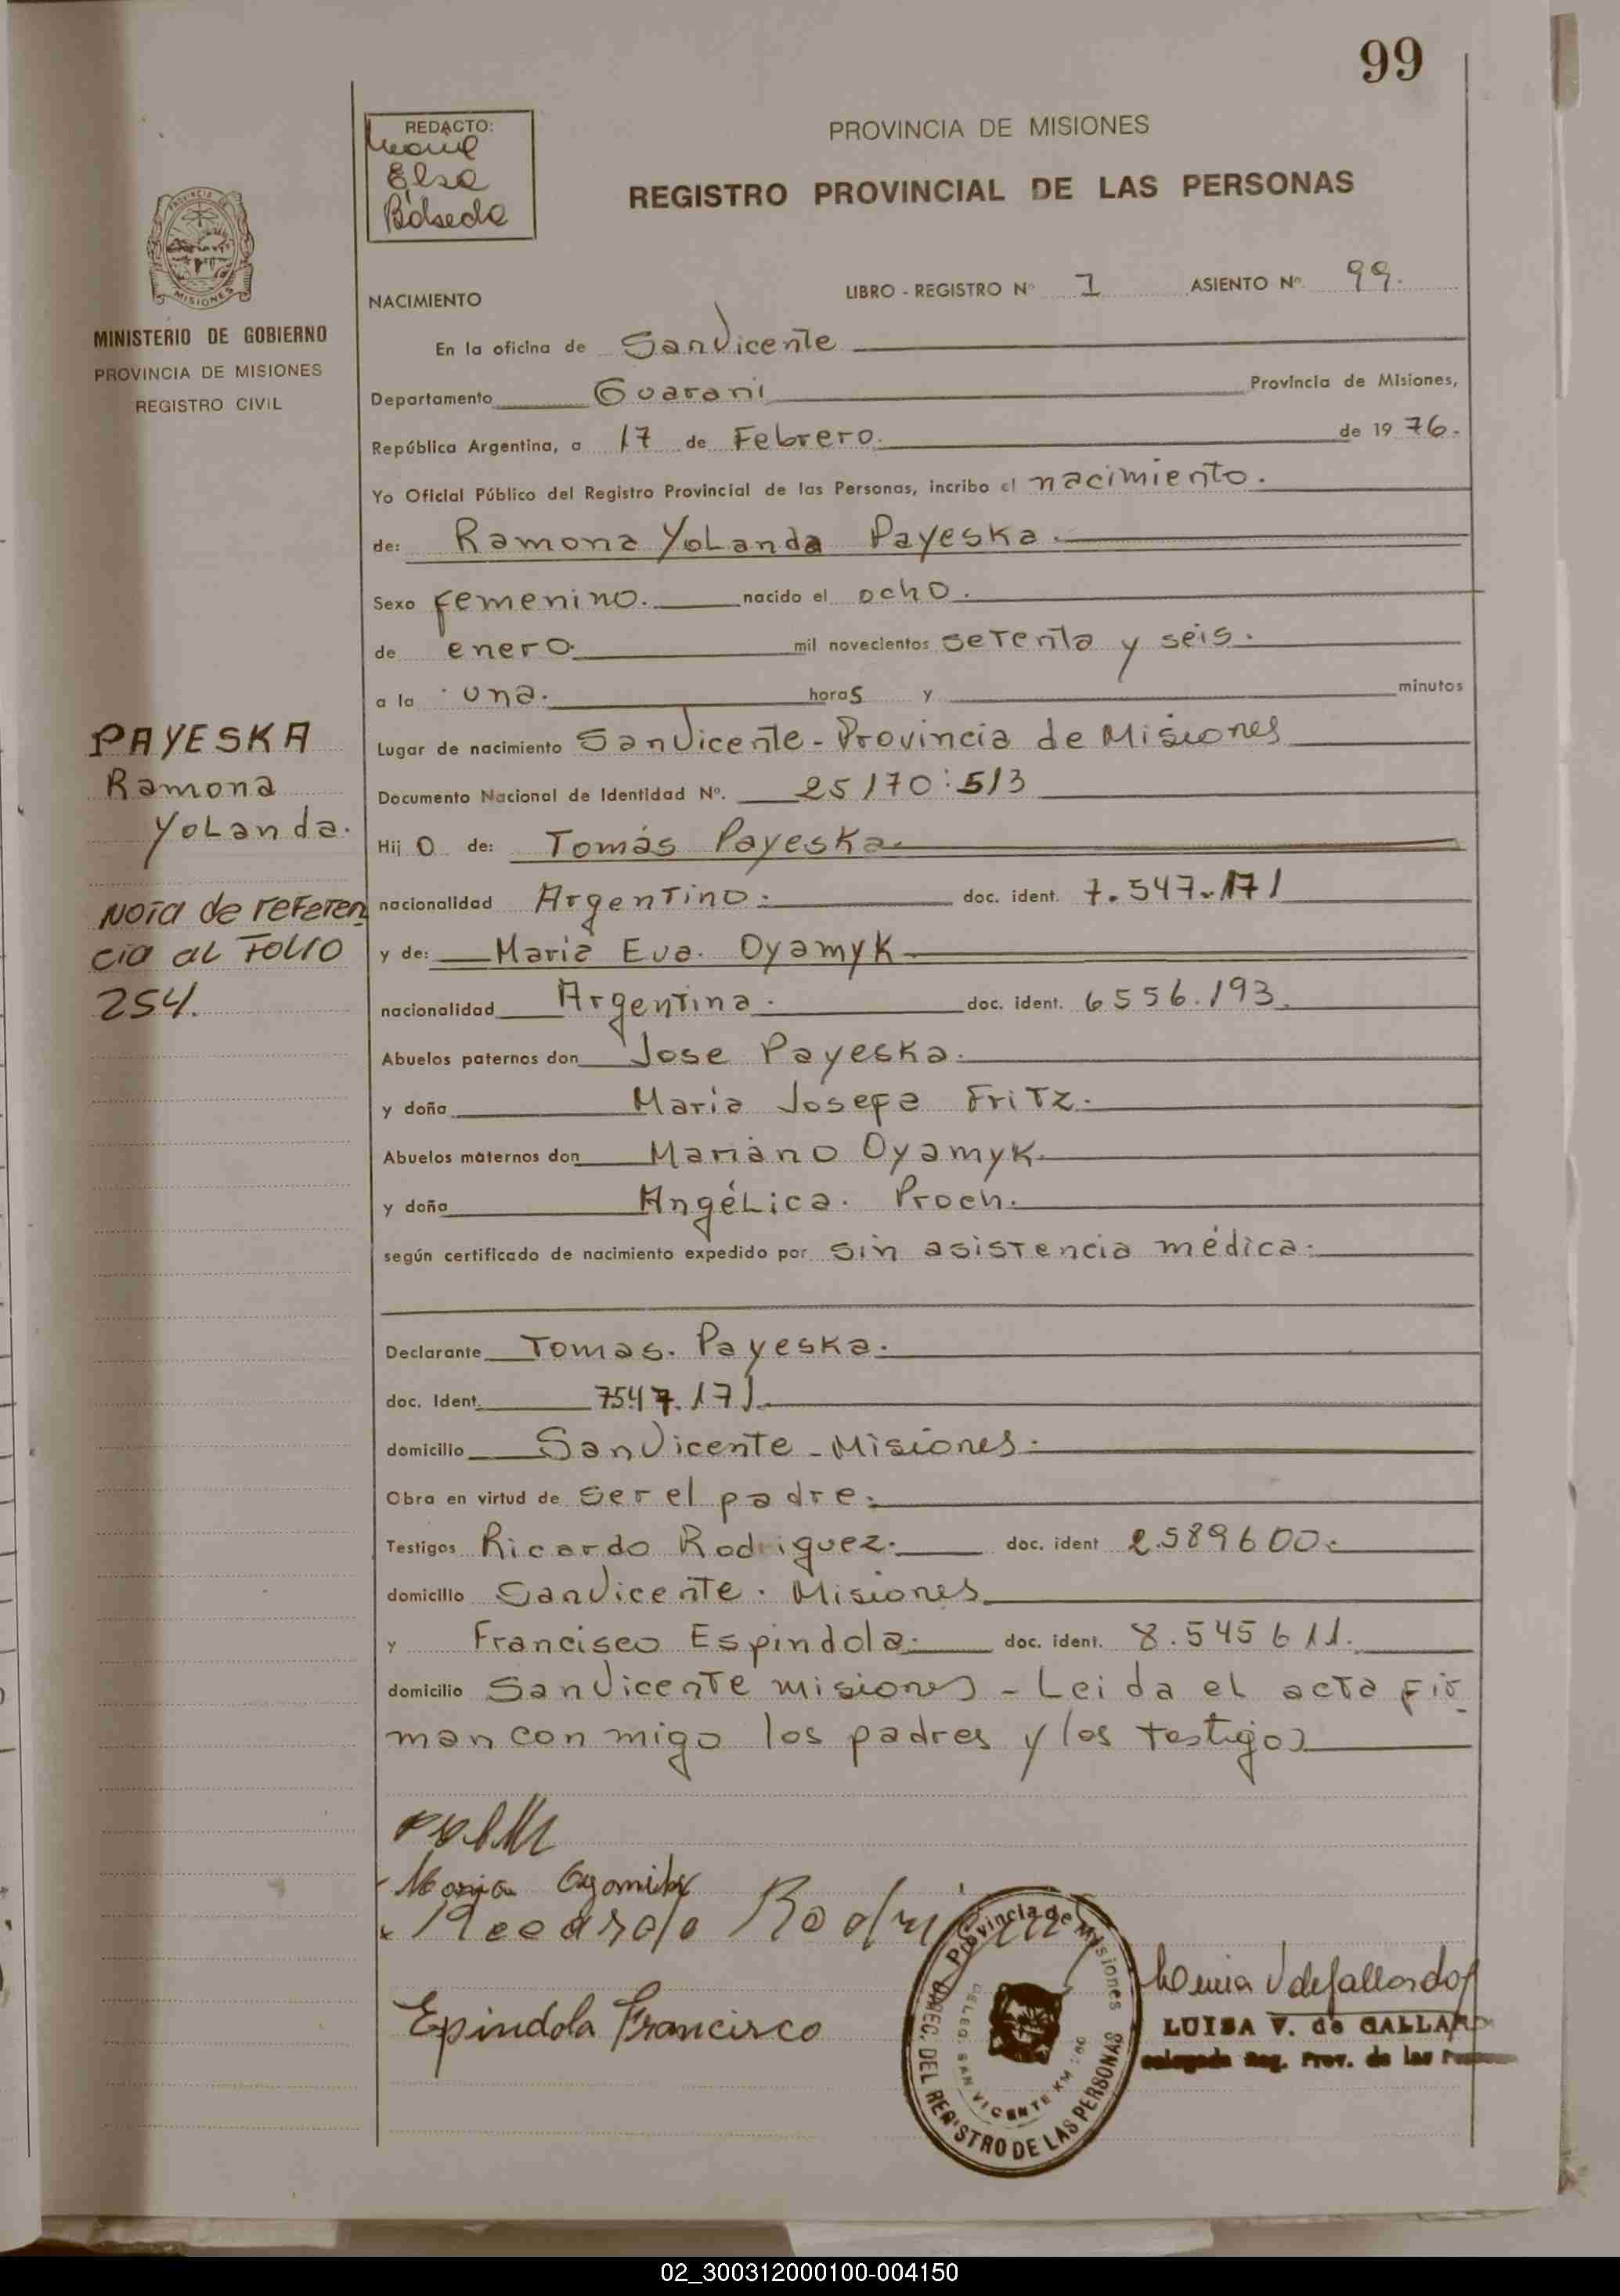 99
REDACTO:
Elsa
PROVINCIA DE MISIONES
REGISTRO PROVINCIAL DE LAS PERSONAS
MISIONES
MINISTERIO DE GOBIERNO
PROVINCIA DE MISIONES
REGISTRO CIVIL
NACIMIENTO
LIBRO - REGISTRO Nº 1 ASIENTO Nº 99.
En la oficina de San Vicente
Departamento Guarani Provincia de Misiones,
República Argentina, a 17 de Febrero. de 19 76.
Yo Oficial Público del Registro Provincial de las Personas, incribo el nacimiento.
de: Ramona Yolanda Payeska.
Sexo femenino. nacido el ocho.
de enero. mil novecientos setenta y seis.
a la una. horas y minutos
PAYESKA
Ramona
Yolanda.
Nota de referen
cia al Folio
254.
Lugar de nacimiento San Vicente - Provincia de Misiones
Documento Nacional de Identidad Nº. 25170:513
Hij o de: Tomás Payeska.
nacionalidad Argentino. doc. ident. 7.547.171
y de: Maria Eva. Oyamyk
nacionalidad Argentina. doc. ident. 6556.193.
Abuelos paternos don Jose Payeska.
y doña Maria Josefa Fritz.
Abuelos maternos don Mariano Oyamyk.
y doña Angélica. Proch.
según certificado de nacimiento expedido por sin asistencia médica.
Declarante Tomas. Payeska.
doc. Ident. 7547.171.
domicilio San Vicente - Misiones.
Obra en virtud de ser el padre.
Testigos Ricardo Rodriguez. doc. ident 2.589600.
domicilio San Vicente. Misiones
y Francisco Espindola. doc. ident. 8.545611.
domicilio San Vicente misiones - Leida el acta fir
man con migo los padres y los testigos
Epindola Francisco
Provincia de Misiones
DIREC. DEL REGISTRO DE LAS PERSONAS
DELEG. SAN VICENTE KM
LUISA V. de GALLARDO
Delegada Reg. Prov. de las Personas
02_300312000100-004150